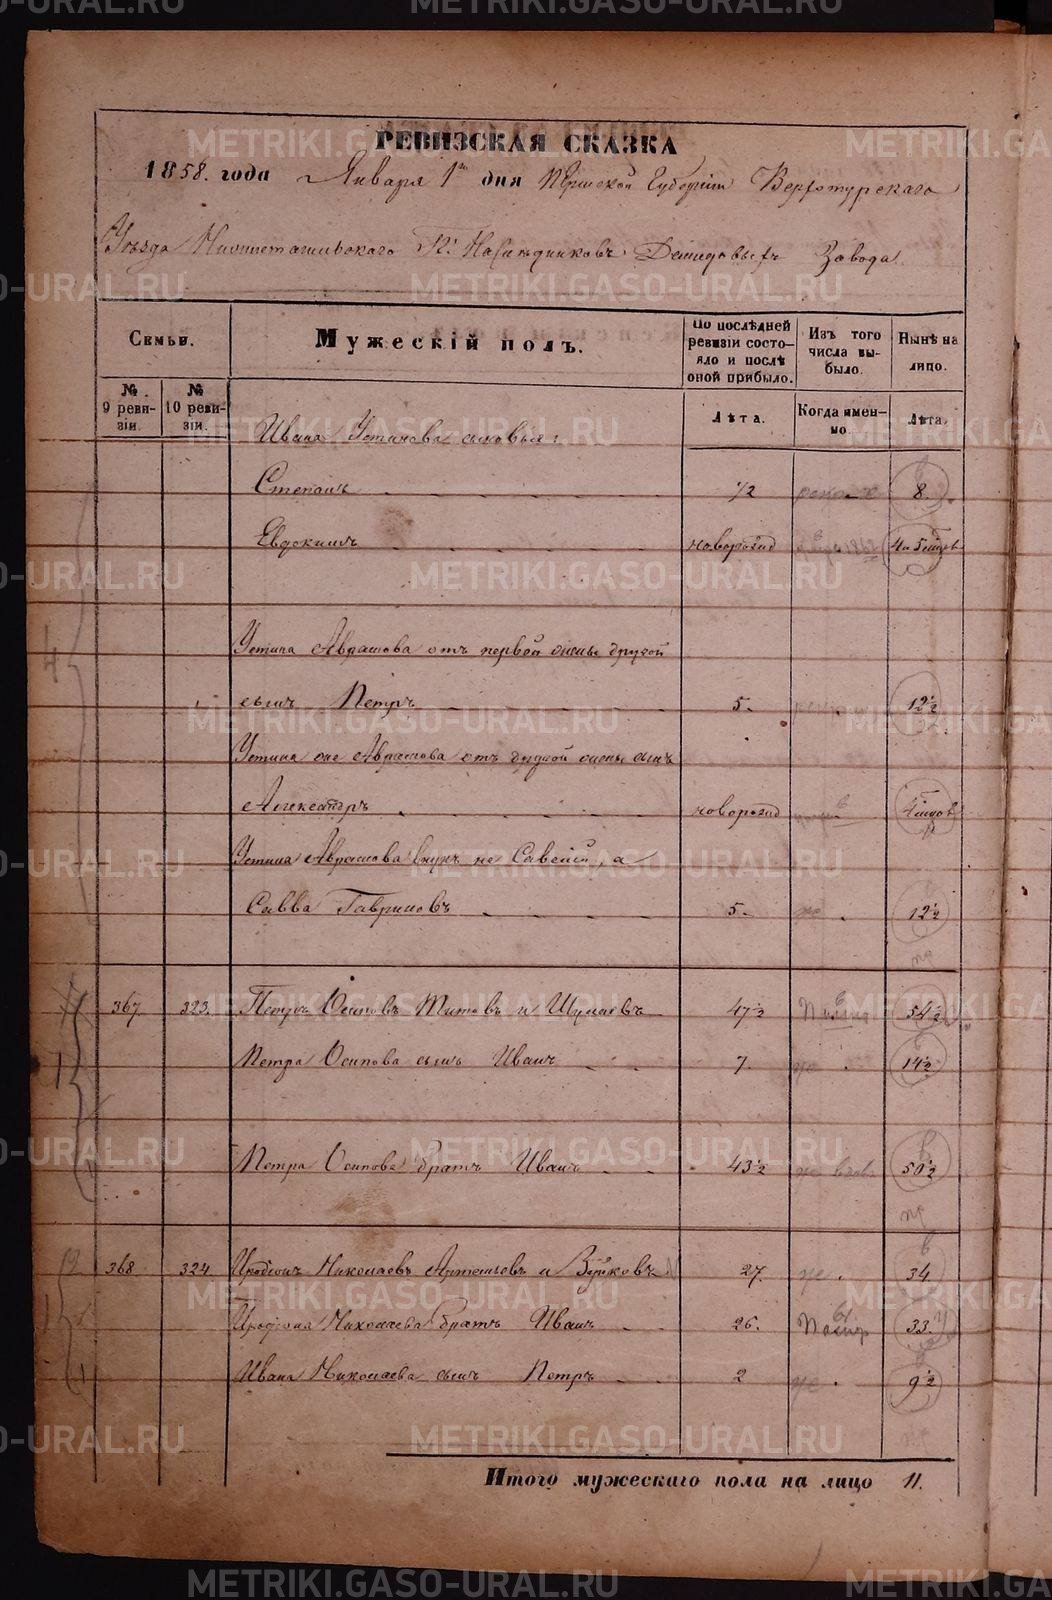 РЕВИЗСКАЯ СКАЗКА
1858. года Января 1го дня Пермской Губернiи Верхотурскаго
Уѣзда Нижнетагильскаго Гг. Наслѣдниковъ Демидовыхъ Завода.
Семьи. Мужескій полъ. По послѣдней ревизіи состояло и послѣ оной прибыло. Изъ того числа выбыло. Нынѣ на лицо.
№ 9 ревизіи. № 10 ревизіи. Лѣта. Когда именно. Лѣта.
Ивана Устинова сыновья:
Степанъ 1/2 8.
Евдокимъ новорожд 4 и 5
Устина Аврамова отъ первой жены другой
сынъ Петръ 5. 12½
Устина же Аврамова отъ другой жены сынъ
Александръ новорожд
Устина Аврамова внукъ не Савелій, а
Савва Гавриловъ 5. 12½
367 323. Петръ Осиповъ Титовъ и 47½ 54½
Петра Осипова сынъ Иванъ 7. 14½
Петра Осипова братъ Иванъ 43½ 50½
368 324 Иродіонъ Николаевъ Артемьевъ и 27. 34
Иродіона Николаева братъ Иванъ 26. 33.
Ивана Николаева сынъ Петръ 2 9½
Итого мужескаго пола на лицо 11.
METRIKI.GASO-URAL.RU